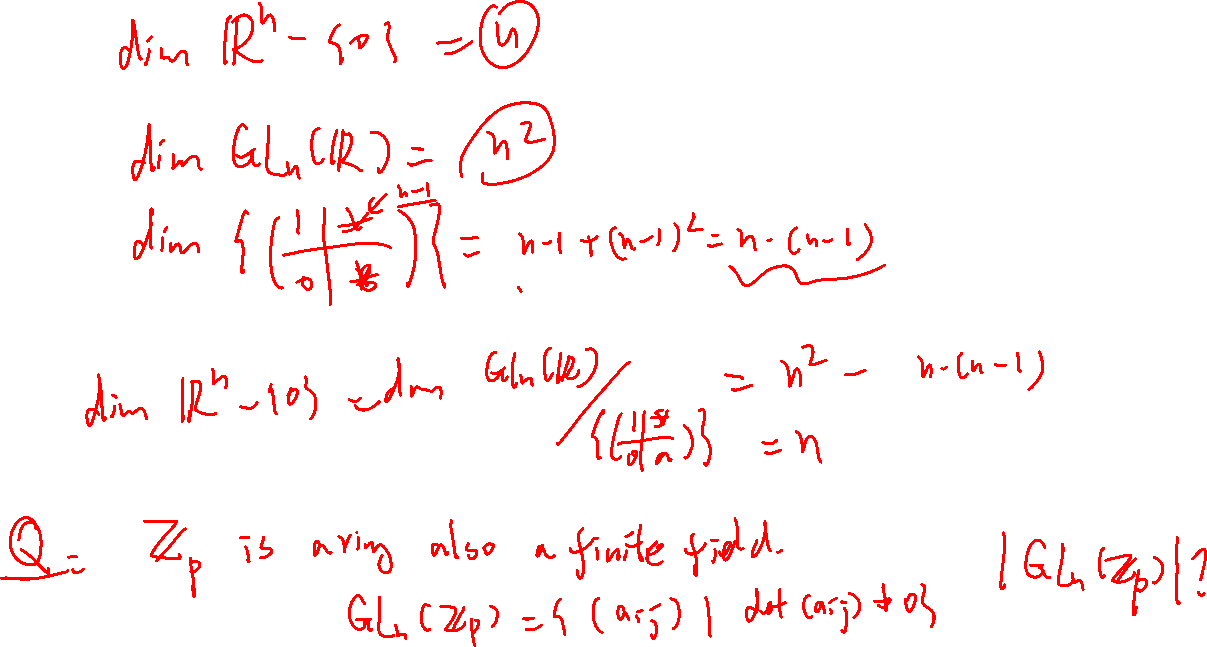 dim ℝⁿ - {0} = n
dim GLₙ(ℝ) = n²
dim {(1 | * ← n-1 / 0 | *)} = n-1 + (n-1)² = n·(n-1)
dim ℝⁿ - {0} = dim GLₙ(ℝ) / {(1 | * / 0 | a)} = n² - n·(n-1)
= n
Q: ℤₚ is a ring also a finite field.
GLₙ(ℤₚ) = { (aᵢⱼ) | det(aᵢⱼ) ≠ 0} |GLₙ(ℤₚ)|?